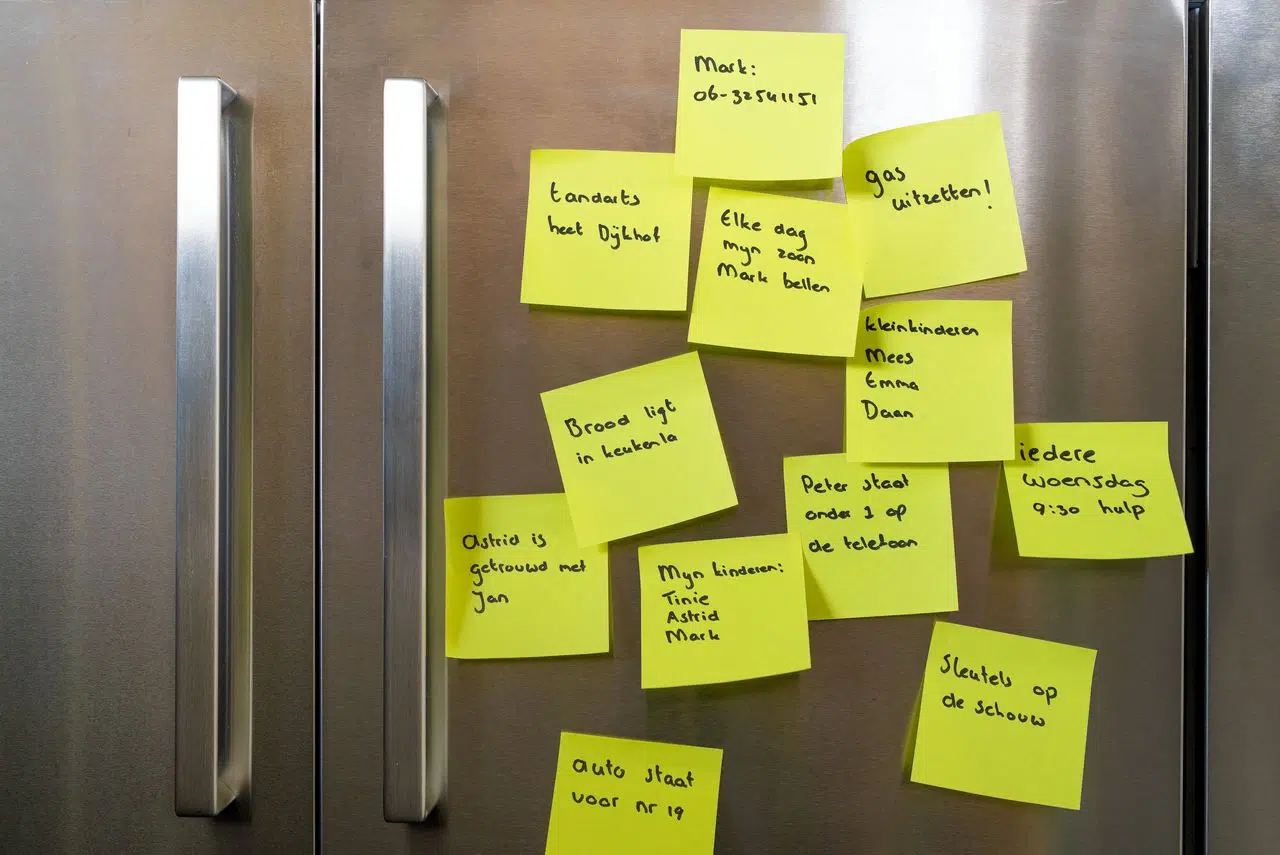 Mark:
06-32541151
tandarts
heet Dijkhof
Elke dag
mijn zoon
Mark bellen
gas
uitzetten!
kleinkinderen
Mees
Emma
Daan
Brood ligt
in keukenla
iedere
woensdag
9:30 hulp
Peter staat
onder 1 op
de telefoon
Astrid is
getrouwd met
Jan
Mijn kinderen:
Tinie
Astrid
Mark
Sleutels op
de schouw
auto staat
voor nr 19